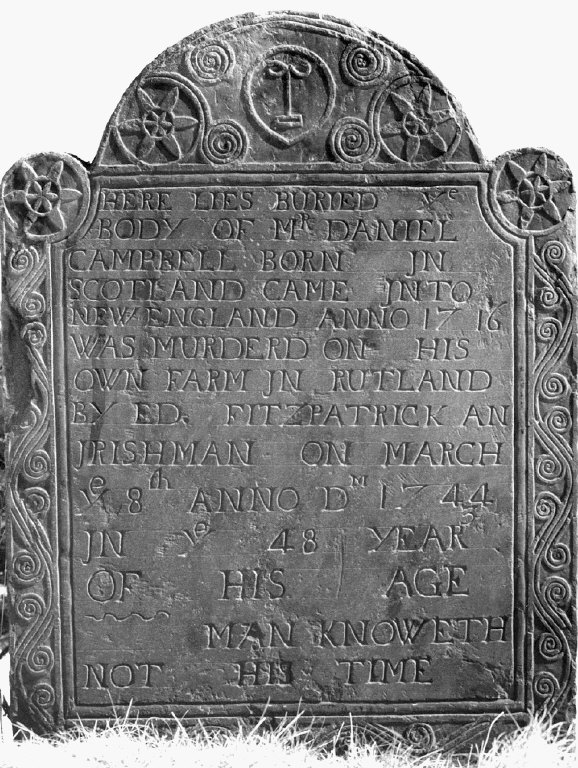 HERE LIES BURIED Yᵉ
BODY OF Mᴿ DANIEL
CAMPBELL BORN JN
SCOTLAND CAME JNTO
NEW ENGLAND ANNO 1716
WAS MURDERD ON HIS
OWN FARM JN RUTLAND
BY ED. FITZPATRICK AN
JRISHMAN ON MARCH
Yᵉ 8ᵗʰ ANNO Dᴹ 1744
JN Yᵉ 48 YEAR
OF HIS AGE
MAN KNOWETH
NOT HIS TIME